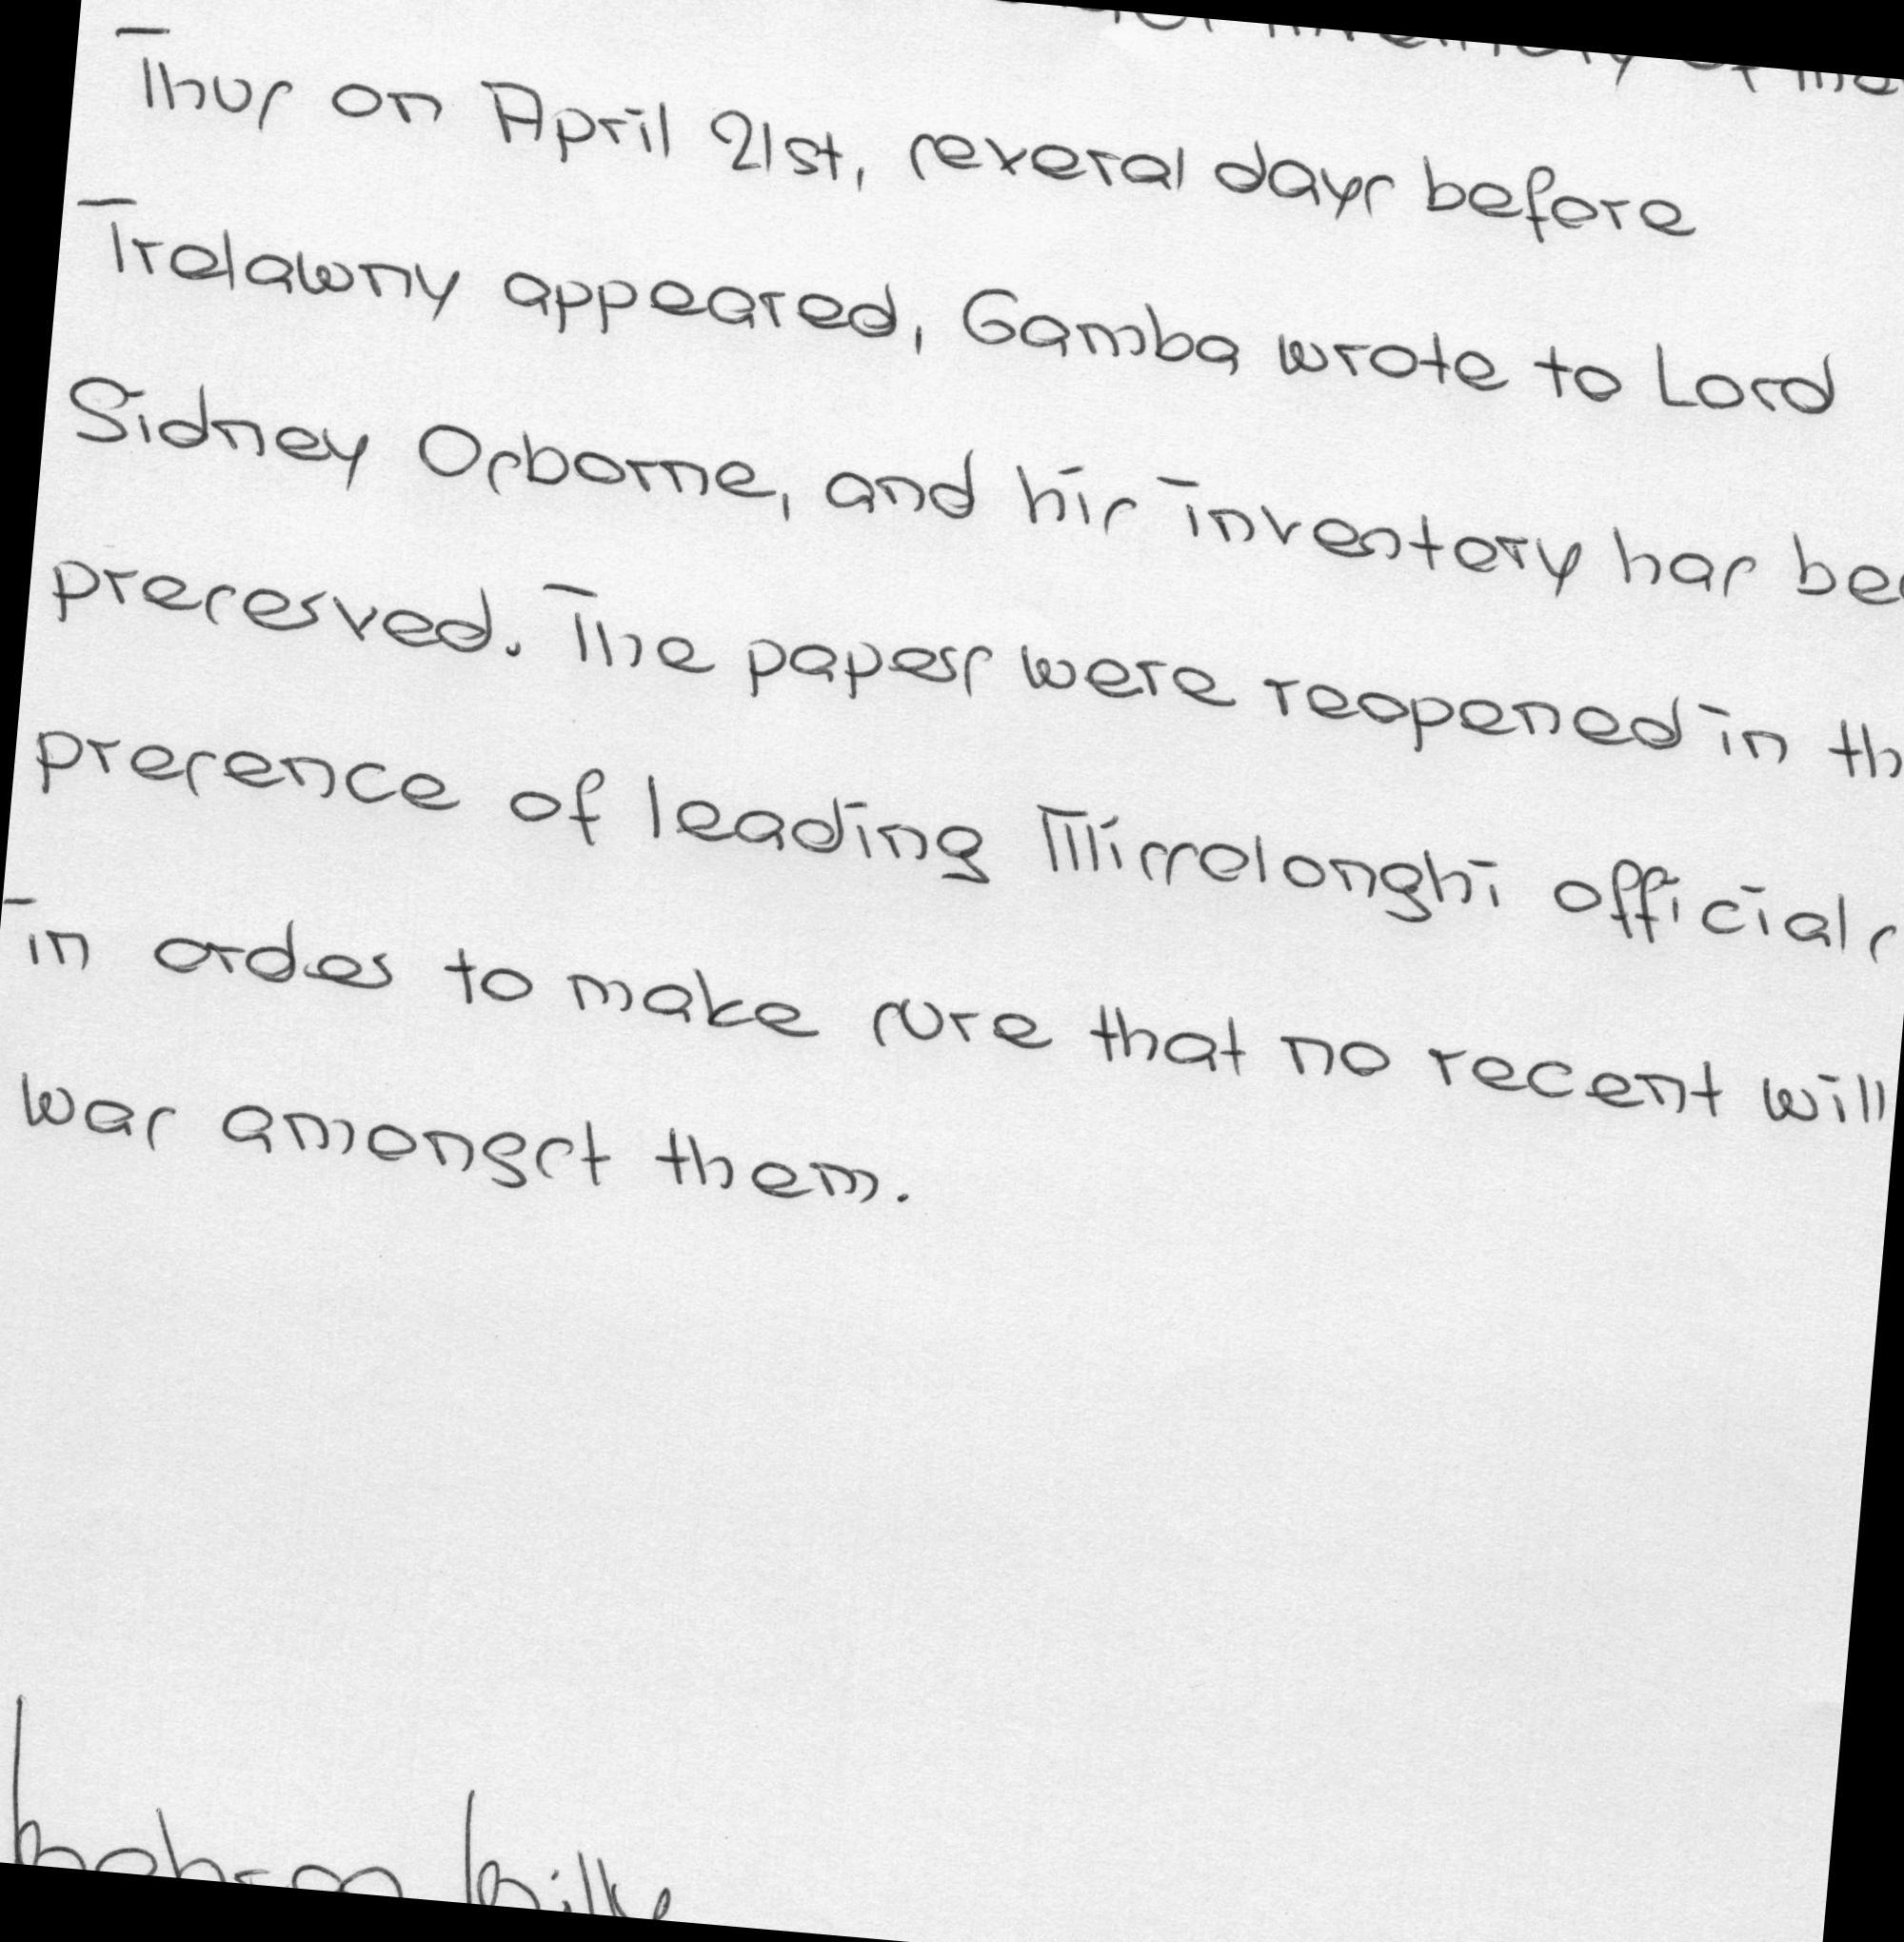 Thus on April 21st, several days before
Trelawny appeared, Gamba wrote to Lord
Sidney Osborne, and his inventory has
preserved. The papers were reopened in
presence of leading Missolonghi officials
in order to make sure that no recent will
was amongst them.